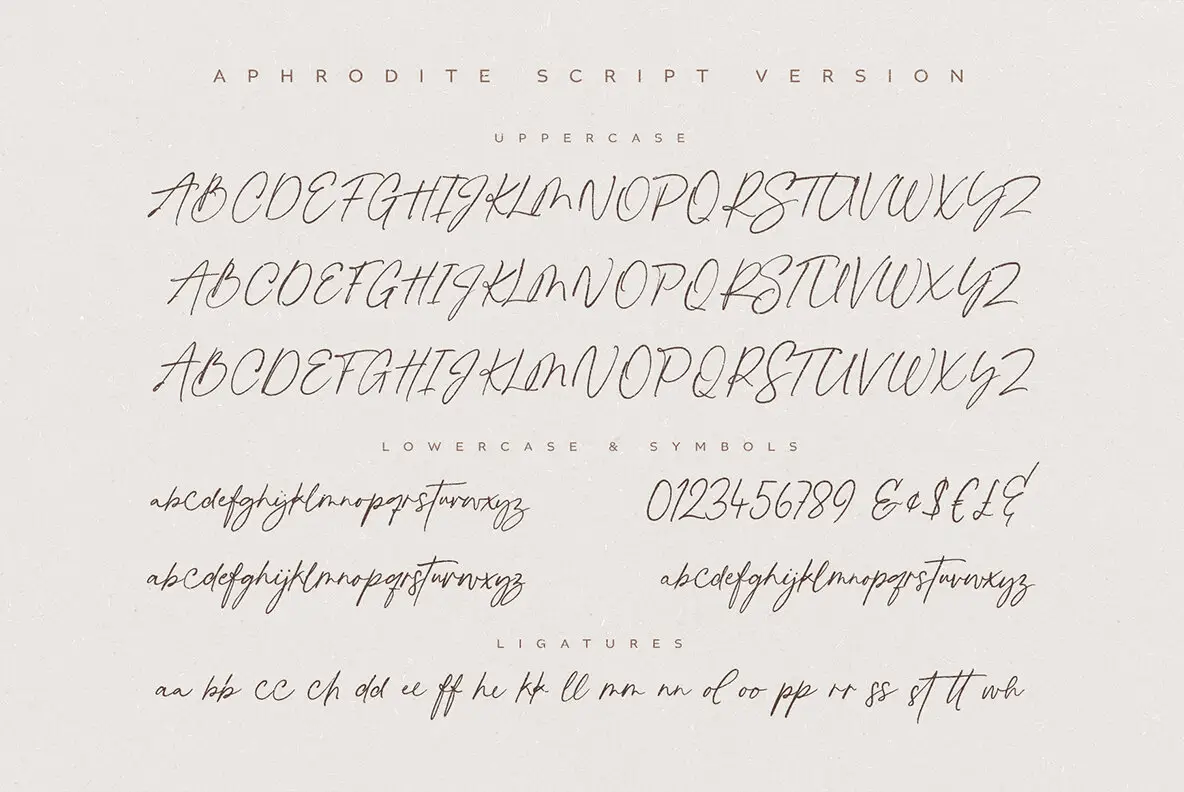 APHRODITE SCRIPT VERSION
UPPERCASE
ABCDEFGHIJKLMNOPQRSTUVWXYZ
ABCDEFGHIJKLMNOPQRSTUVWXYZ
ABCDEFGHIJKLMNOPQRSTUVWXYZ
LOWERCASE & SYMBOLS
abcdefghijklmnopqrstuvwxyz
0123456789 &¢$€£&
abcdefghijklmnopqrstuvwxyz
abcdefghijklmnopqrstuvwxyz
LIGATURES
aa bb cc ch dd ee ff he kk ll mm nn ol oo pp rr ss st tt wh